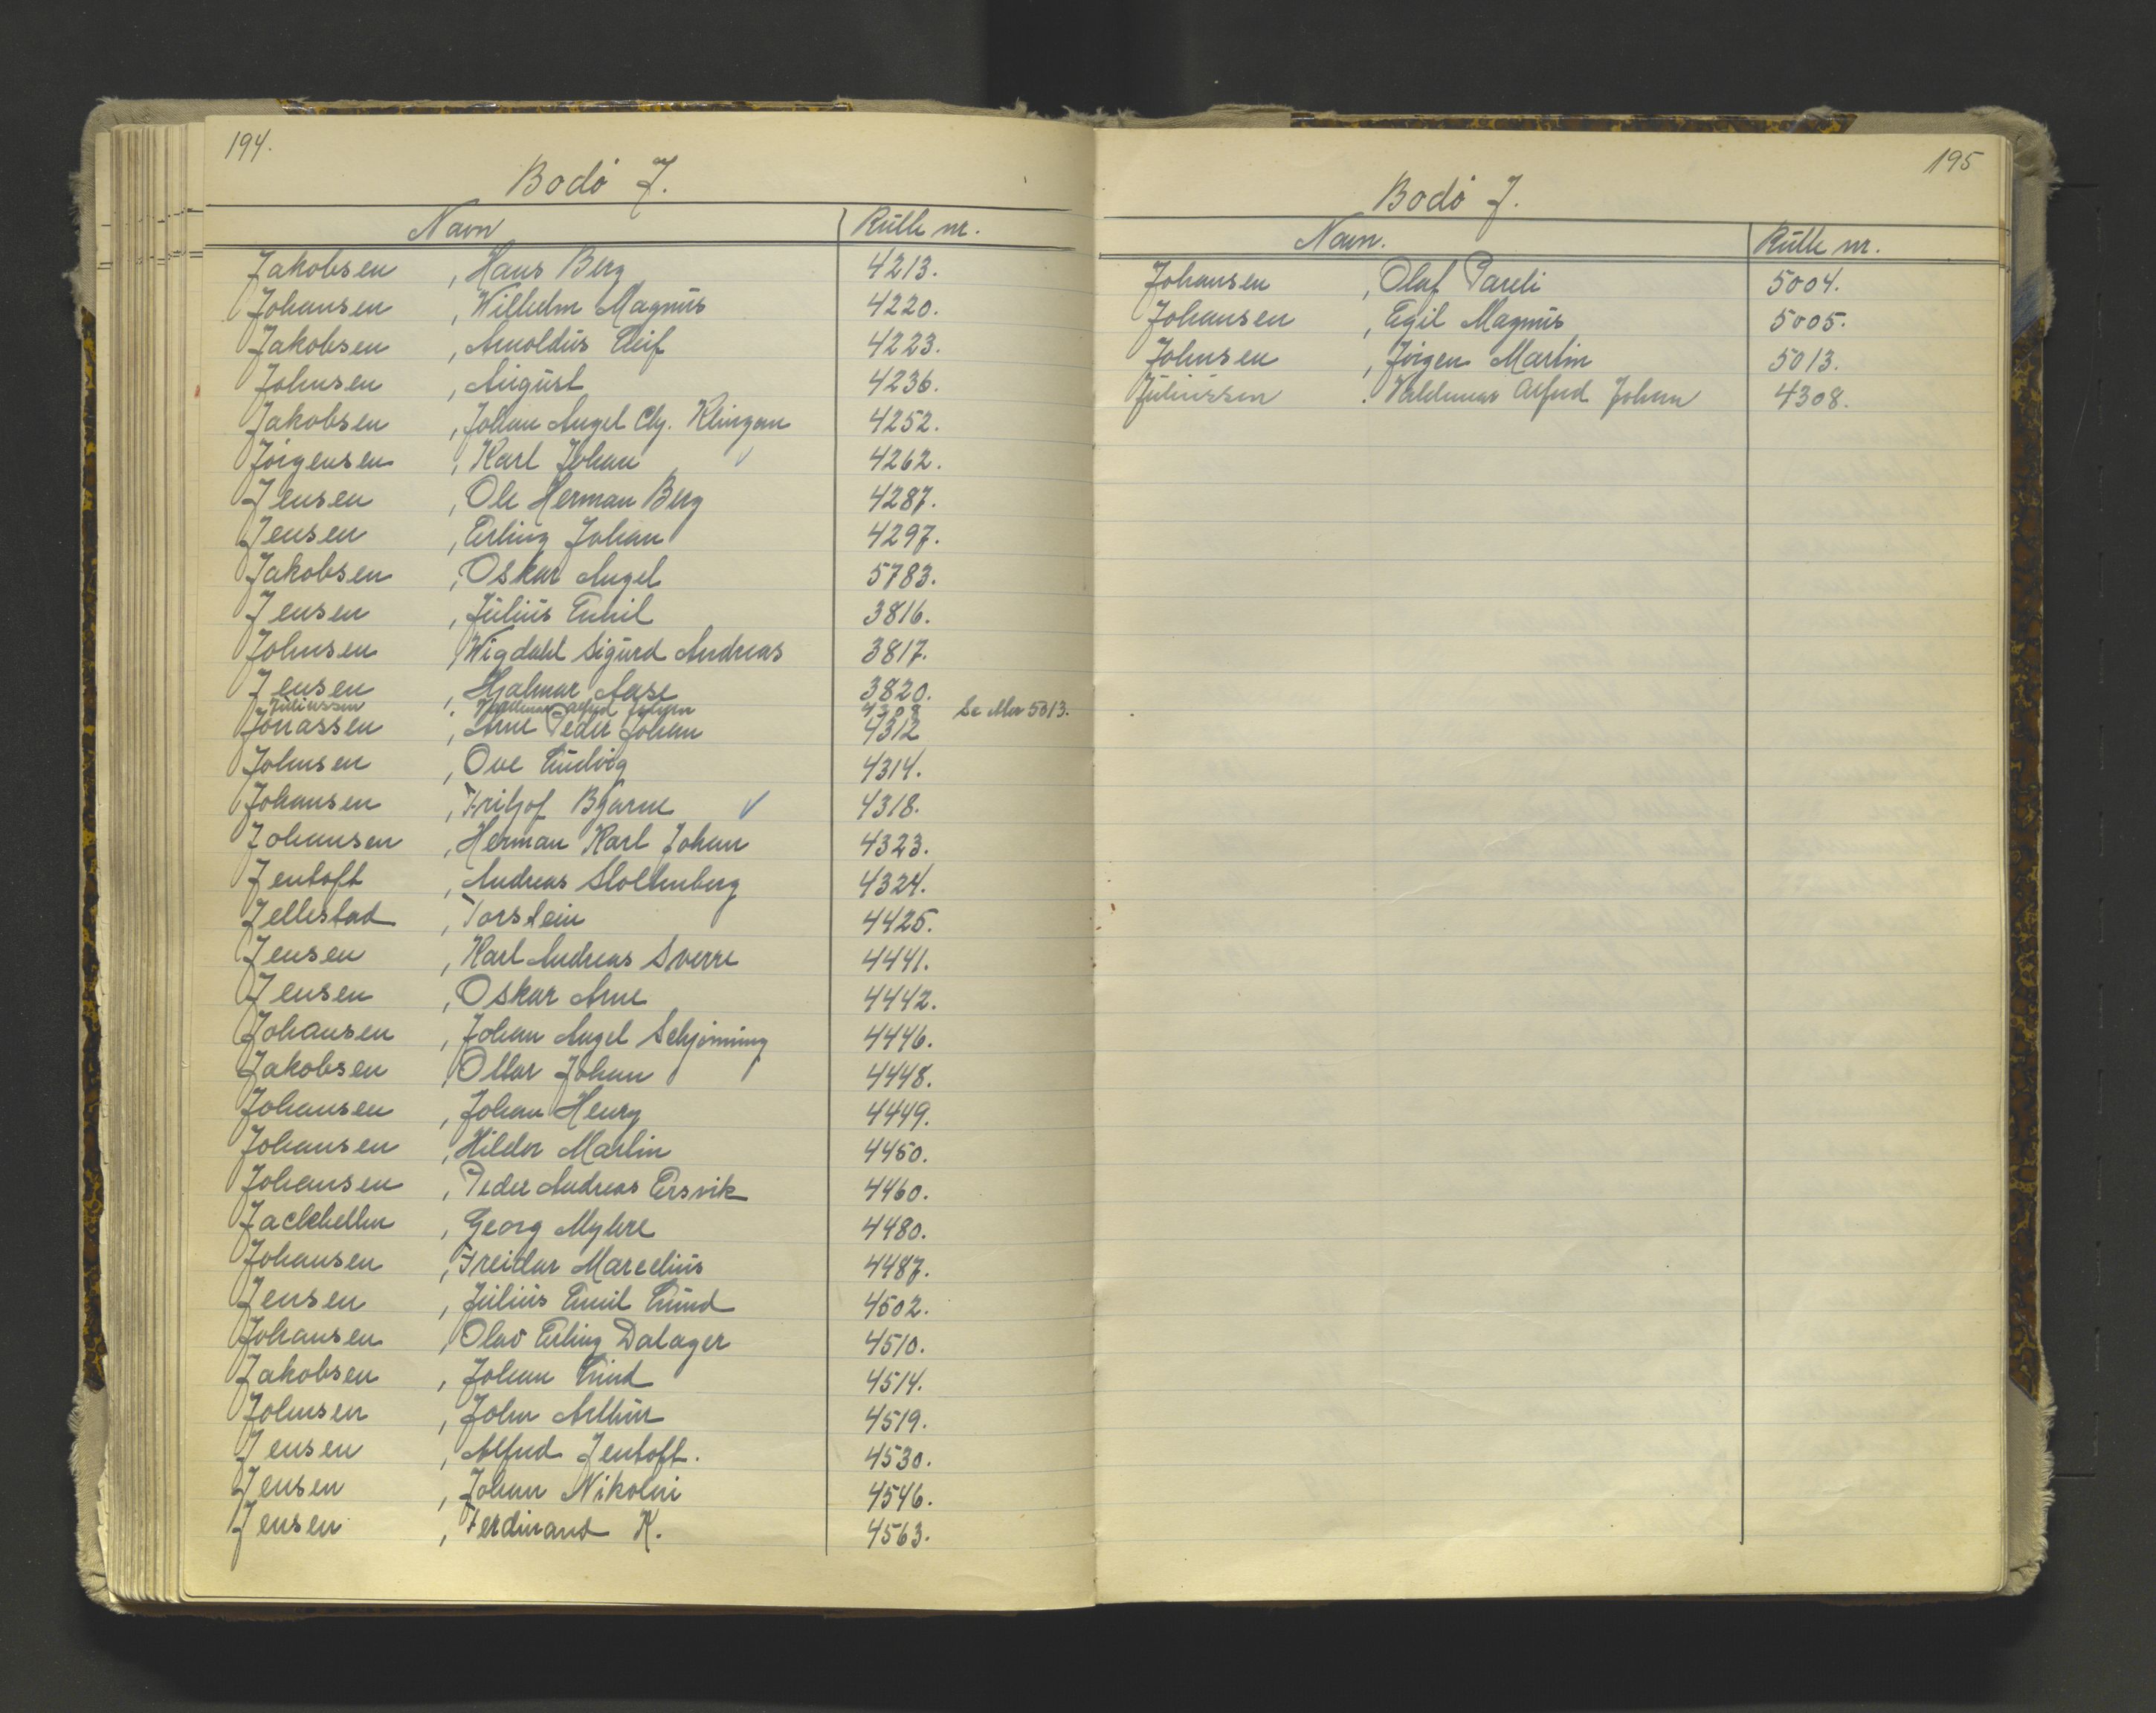 194.
Bodö J.
Navn Rulle nr.
Jakobsen , Hans Berg 4213.
Johansen , Wilhelm Magnus 4220.
Jakobsen , Arnoldus Leif 4223.
Johnsen , August 4236.
Jakobsen , Johan Angel Chr. Klingan 4252.
Jörgensen , Karl Johan 4262.
Jensen , Ole Herman Berg 4287.
Jensen , Erling Johan 4297.
Jakobsen , Oskar Angel 5783.
Jensen , Julius Emil 3816.
Johnsen , Wigdahl Sigurd Andreas 3817.
Jensen , Hjalmar Aase 3820.
Juliussen , Valdemar Alfred Johan 4308 Se Mer 5013.
Jonassen , Arne Peder Johan 4312
Johnsen , Ove Ludvig 4314.
Johansen , Fritjof Bjarne 4318.
Johansen , Herman Karl Johan 4323.
Jentoft , Andreas Stoltenberg 4324.
Jellestad , Torstein 4425.
Jensen , Karl Andreas Sverre 4441.
Jensen , Oskar Arne 4442.
Johansen , Johan Angel Schjönning 4446.
Jakobsen , Ottar Johan 4448.
Johansen , Johan Henry 4449.
Johansen , Hildor Martin 4450.
Johansen , Peder Andreas Ersvik 4460.
Jackhelln , Georg Myhre 4480.
Johansen , Freidar Marcelius 4487.
Jensen , Julius Emil Lund 4502.
Johansen , Olav Erling Dalager 4510.
Jakobsen , Johan Lind 4514.
Johnsen , John Arthur 4519.
Jensen , Alfred Jentoft. 4530.
Jensen , Johan Nikolai 4546.
Jensen , Ferdinand K. 4563.
195
Bodö J.
Navn. Rulle nr.
Johansen , Olaf Pareli 5004.
Johansen , Egil Magnus 5005.
Johnsen , Jörgen Martin 5013.
Juliussen . Valdemar Alfred Johan 4308.